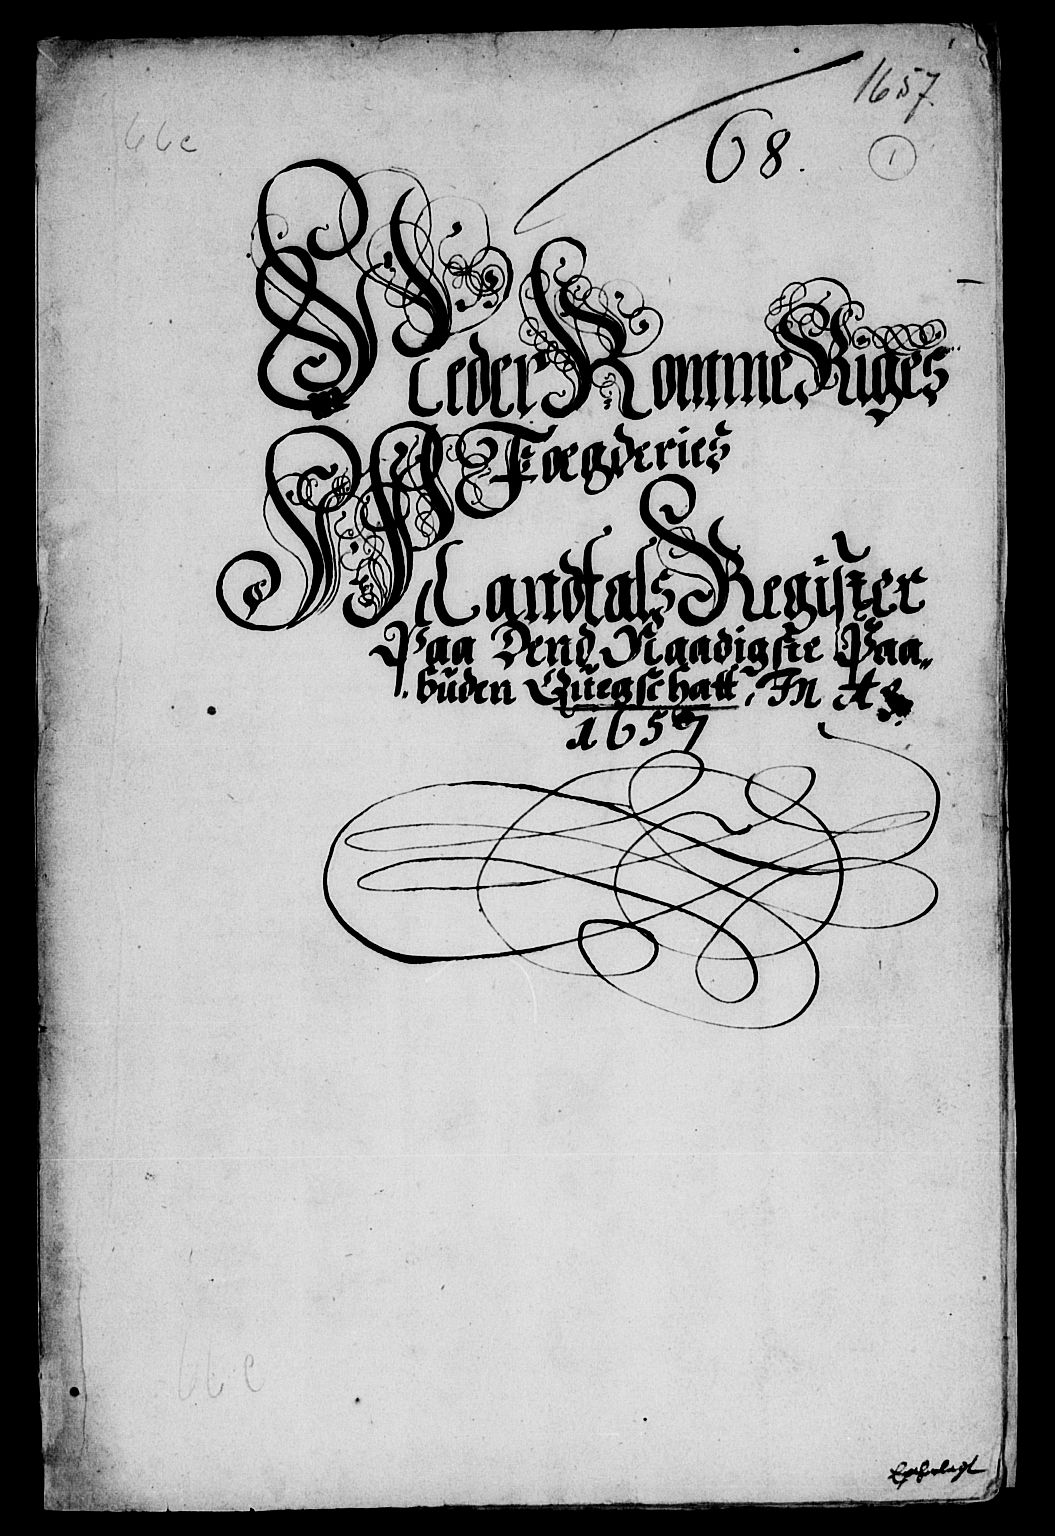 1657
68.
1
66e
Neder Romme Riges
Foegderies
Mandtals Register
Paa Dend Naadigste Paa„
büden Quegschatt, In A&
1657
66e